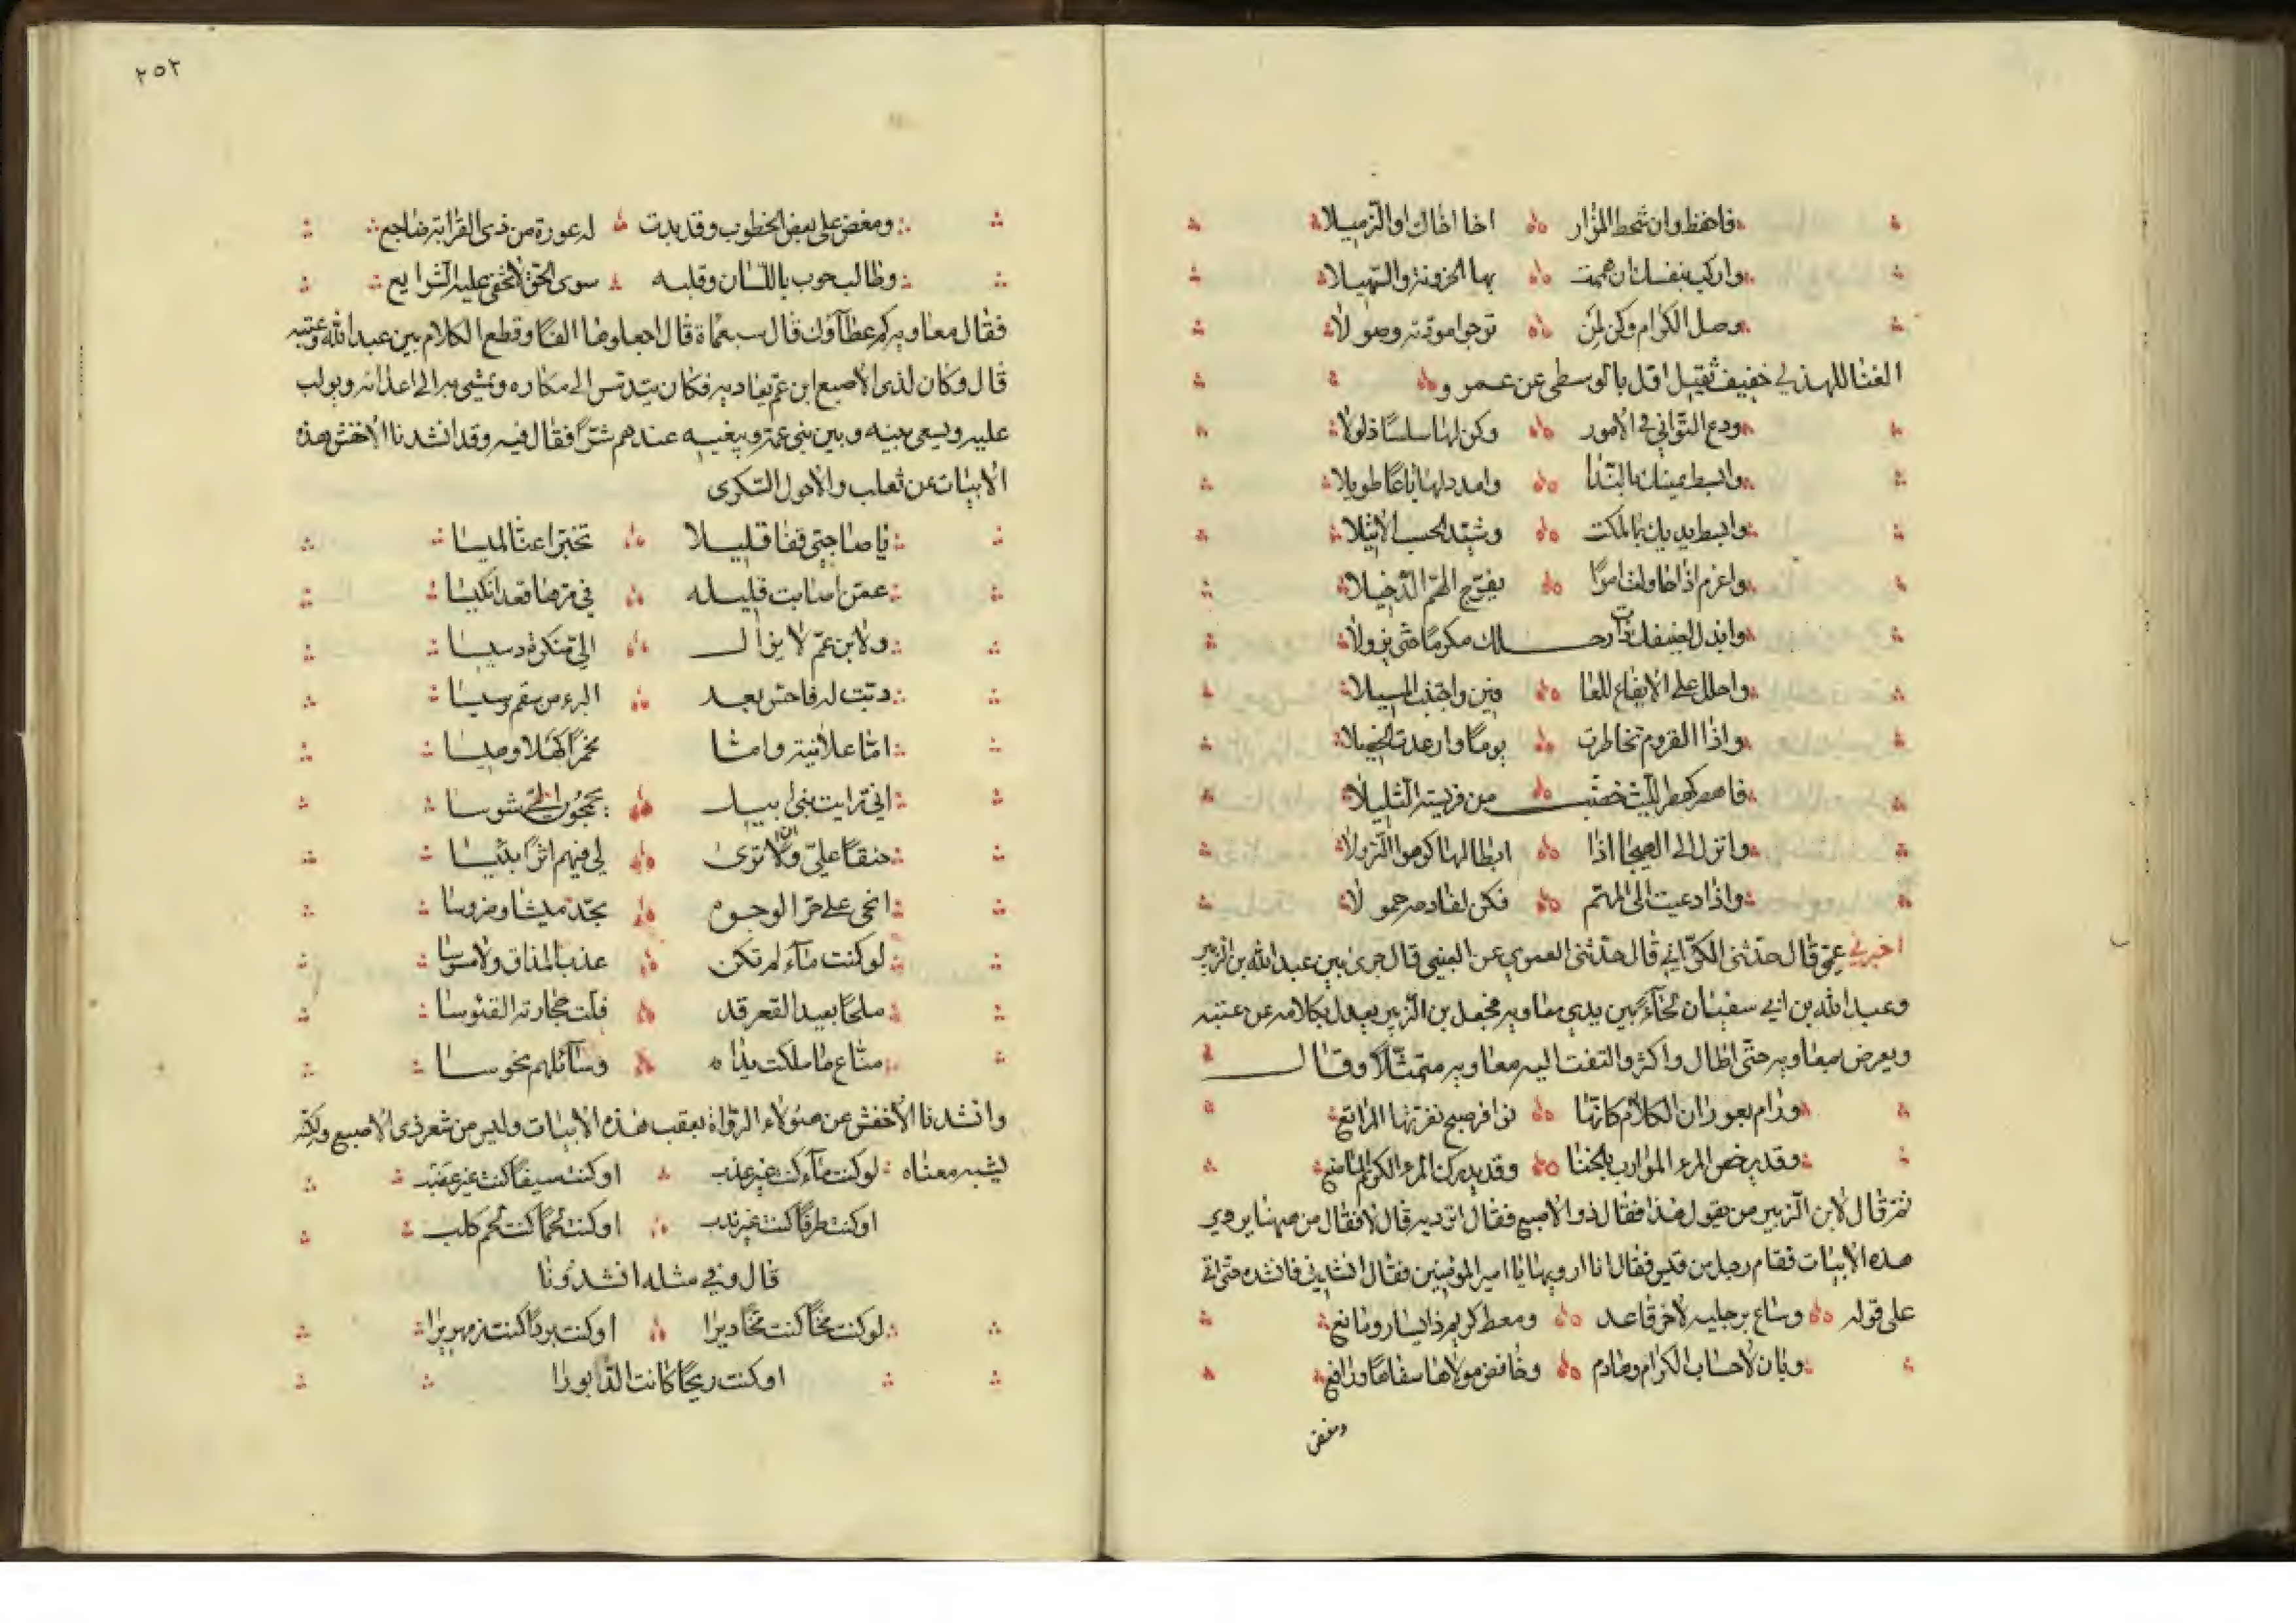 فاحفظ وان شحط المزار اخا اخاك او الزميلا
واركب بنفسك ان هممت بها الحزونة والسهيلا
وصل الكرام وكن لمن ترجوا مودته وصولا
الغنا للهذلي خفيف ثقيل اول بالوسطى عن عمرو
ودع التواني في الامور وكن لها سلسا ذلولا
وابسط يمينك بالندا وامدد لها باعا طويلا
وابسط يديك بما ملكت وشيد الحسب الاثيلا
واعزم اذا حاولت امرا يفرج الهم الدخيلا
وابذل لضيفك ذات رحلك مكرما حتى يزولا
واحلل على الايفاع للعا فين واجتنب المسيلا
واذا القروم تخاطرت يوما وارعدت الخصيلا
فاهصر كهصر الليث خضب من فريسته التليلا
وانزل الى الهيجا اذا ابطالها كرهوا النزولا
واذا دعيت الى المهم فكن لفادحه حمولا
اخبرني عمي قال حدثني الكراني قال حدثني العمري عن العتبي قال جرى بين عبد الله بن الزبير
وعبد الله بن ابي سفيان لحاء بين يدي معاوية فجعل بن الزبير يعدل بكلامه عن عتبة
ويعرض بمعاوية حتى اطال واكثر والتفت اليه معاوية متمثلا وقال
ورام بعوران الكلام كانها نوافر صبح نفرتها المراتع
وقد يدحض المرء الموارب بالخنا وقد يدرك المرء الكريم المصانع
ثم قال لابن الزبير من يقول هذا فقال ذو الاصبع فقال اترويه قال لا فقال من ههنا يروي
هذه الابيات فقام رجل من قيس فقال انا ارويها يا امير المومنين فقال انشدني فانشده حتى اتى
على قوله وساع برجليه لاخر قاعد ومعط كريم ذا يسار ومانع
وبان لاحساب الكرام وهادم وخافض مولاها سفاها ورافع
ومغض
٢٥٢
ومغض على بعض الخطوب وقد بدت له عورة من ذي القرابة ضاجع
وطالب حوب باللسان وقلبه سوى الحق لا تخفى عليه الشرايع
فقال معاوية كم عطاؤك قال سبعماة قال اجعلوها الفا وقطع الكلام بين عبد الله وعتبة
قال وكان لذي الاصبع ابن عم يعاديه فكان يتدسس الى مكاره ويمشي به الى اعدائه ويولب
عليه ويسعى بينه وبين بني عمه ويبغيه عندهم شرا فقال فيه وقد انشدنا الاخفش هذه
الابيات عن ثعلب والاحول السكري
يا صاحبي قفا قليلا تخبرا عنا لميسا
عمن اصابت قلبه في مرها فغدا نكيسا
ولا بن عم لا يزال الي منكره دسيسا
دبت له فاحس بعد البرء من سقم رسيسا
اما علانية واما مخمرا كهلا وهيسا
اني رايت بني ابيك يحجون الي شوسا
حنقا علي ولا ان ترى لي فيهم اثرا بئيسا
انحى على حر الوجوه بحد ميشا وضروسا
لو كنت ماء لم تكن عذب المذاق ولا مسوسا
ملحا بعيد القعر قد فلت حجارته الفئوسا
مناع ما ملكت يداه وسائلهم نحوسا
وانشدنا الاخفش عن هؤلاء الرواة بعقب هذه الابيات وليس من شعر ذي الاصبع ولكنه
يشبه معناه لو كنت ماء كنت غير عذب او كنت سيفا كنت غير عضب
او كنت طرفا كنت غير ندب او كنت لحما كنت لحم كلب
قال وفي مثله انشدونا
لو كنت مخا كنت مخا ديرا او كنت بردا كنت زمهريرا
او كنت ريحا كانت الدابورا